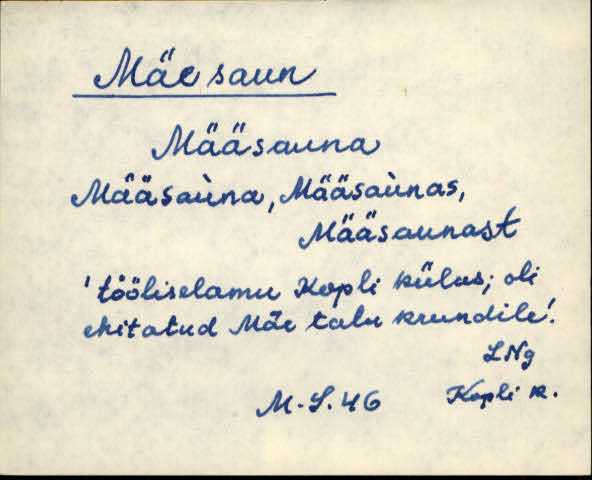 Mäe saun
Määsauna
Määsaùna, Määsaùnas,
Määsaunast
'tööliselamu Kopli külas; oli
ehitatud Mäe talu krundile'.
LNg
M.-S. 46 Kopli k.